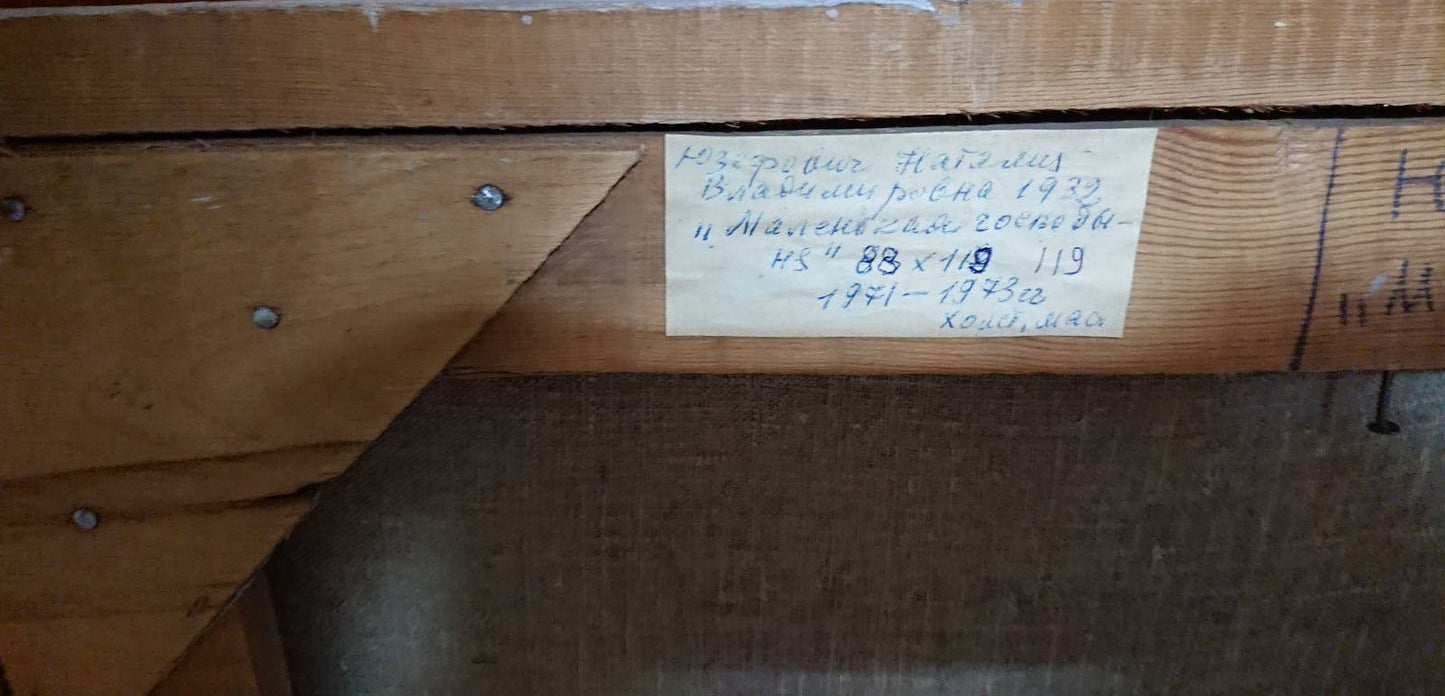 Юзефович Наталия
Владимировна 1932
"Маленькая господы-
ня" 88 х 119 119
1971 – 1973 гг
холст, мас.